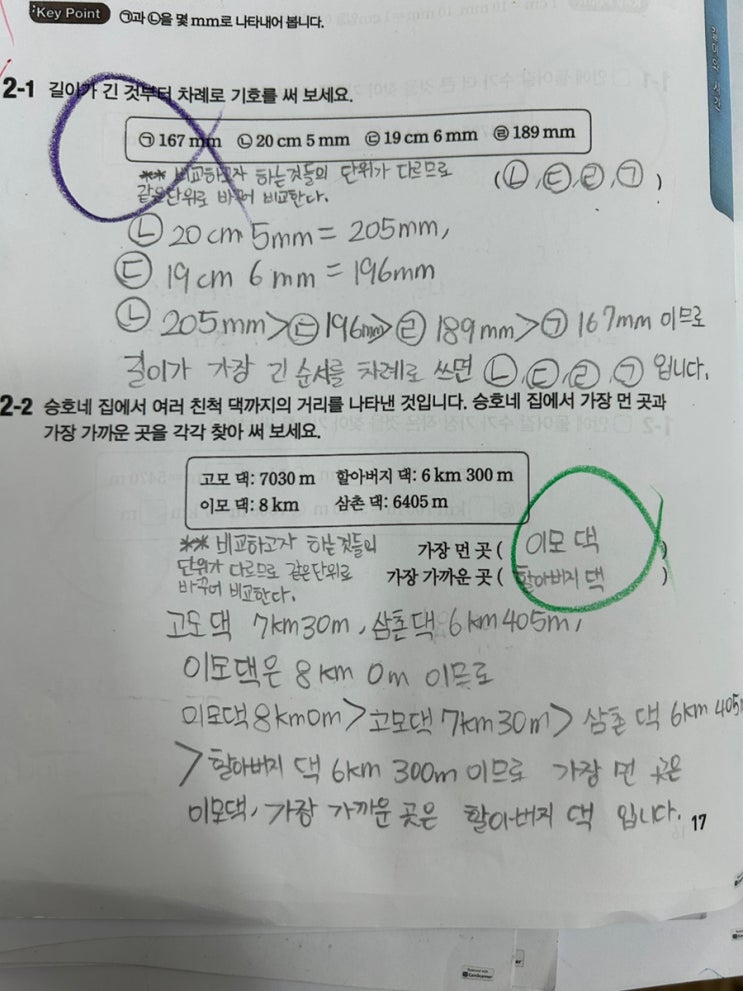 Key Point ㉠과 ㉡을 몇 mm로 나타내어 봅니다.
2-1 길이가 긴 것부터 차례로 기호를 써 보세요.
㉠ 167 mm ㉡ 20 cm 5 mm ㉢ 19 cm 6 mm ㉣ 189 mm
** 비교하고자 하는것들의 단위가 다르므로
같은단위로 바꾸어 비교한다.
(㉡, ㉢, ㉣, ㉠)
㉡ 20cm 5mm = 205mm,
㉢ 19cm 6mm = 196mm
㉡ 205mm > ㉢ 196mm > ㉣ 189mm > ㉠ 167mm 이므로
길이가 가장 긴 순서를 차례로 쓰면 ㉡, ㉢, ㉣, ㉠ 입니다.
2-2 승호네 집에서 여러 친척 댁까지의 거리를 나타낸 것입니다. 승호네 집에서 가장 먼 곳과
가장 가까운 곳을 각각 찾아 써 보세요.
고모 댁: 7030 m 할아버지 댁: 6 km 300 m
이모 댁: 8 km 삼촌 댁: 6405 m
** 비교하고자 하는것들의
단위가 다르므로 같은단위로
바꾸어 비교한다.
가장 먼 곳 ( 이모 댁 )
가장 가까운 곳 ( 할아버지 댁 )
고모댁 7km30m, 삼촌댁 6km405m,
이모댁은 8km 0m 이므로
이모댁 8km0m > 고모댁 7km30m > 삼촌 댁 6km 405
> 할아버지 댁 6km 300m 이므로 가장 먼 곳은
이모댁, 가장 가까운 곳은 할아버지 댁 입니다.
17